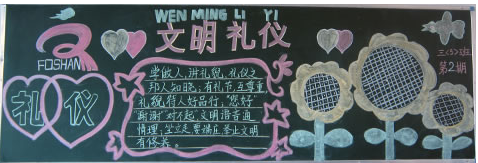 WEN MING LI YI
文明礼仪
FOSHAN
三(5)班
第2期
礼 仪
堂的人,讲礼貌,礼仪之
邦人知晓;有礼节互尊重
礼貌待人好品行,"您好"
"谢谢"对不起,文明语言通
情理;坐立走 要端正 举止文明
有修养。